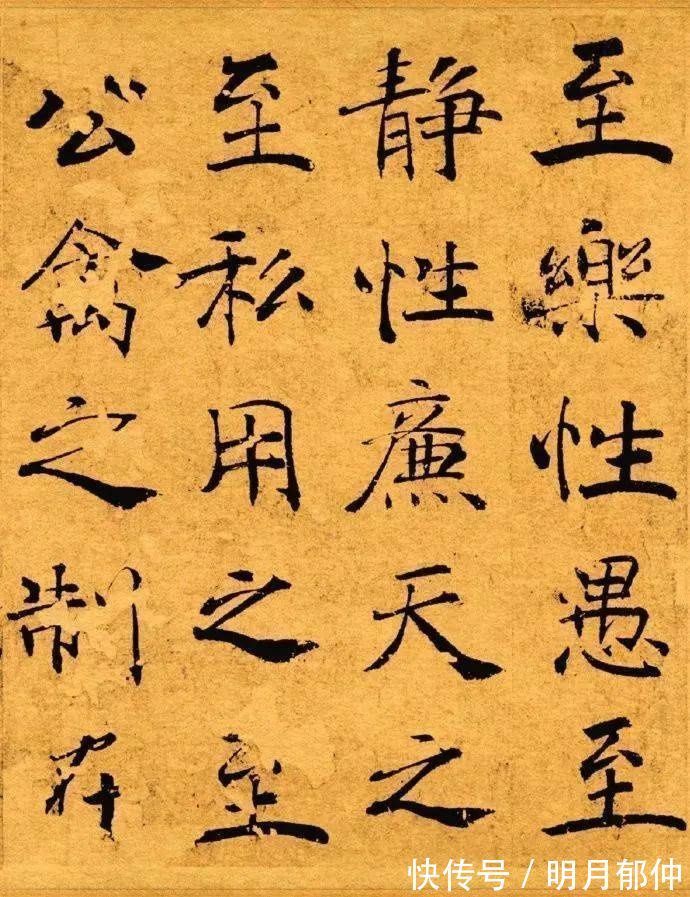 至樂性愚至
靜性廉天之
至私用之至
公禽之制
快传号 / 明月郁仲